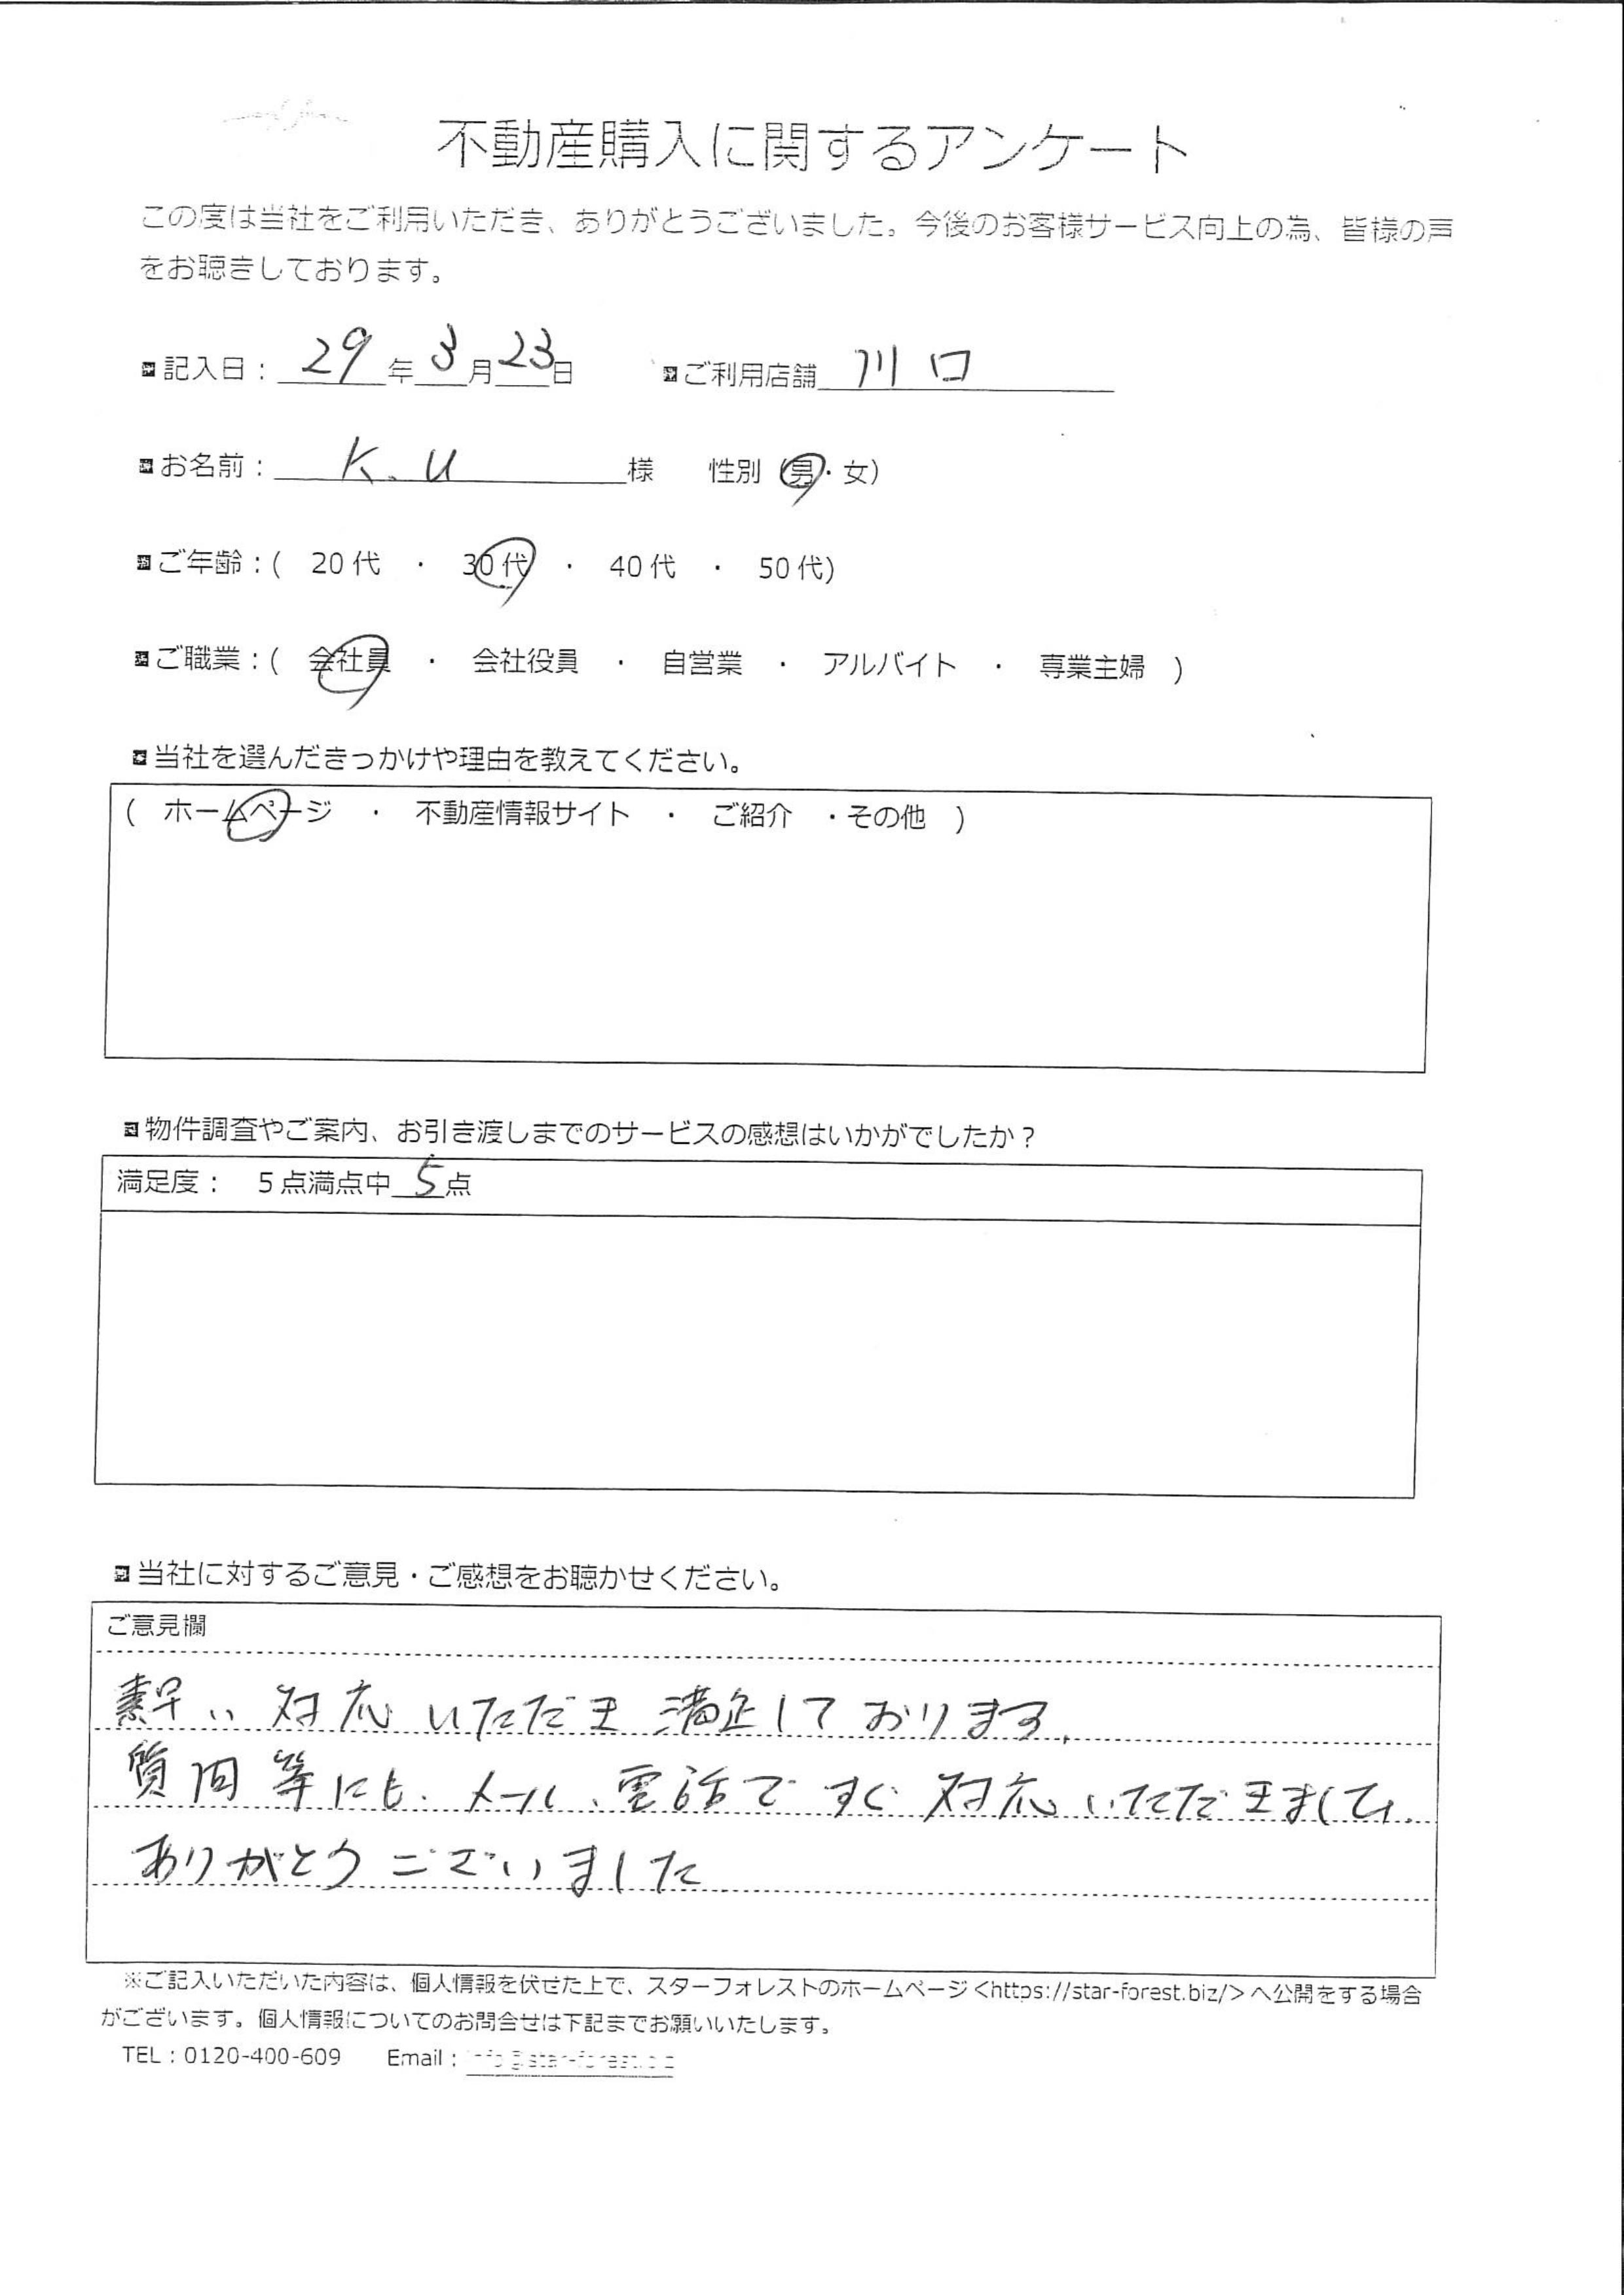 不動産購入に関するアンケート
この度は当社をご利用いただき、ありがとうございました。今後のお客様サービス向上の為、皆様の声
をお聴きしております。
記入日： 29 年 3 月 23 日 ご利用店舗 川口
お名前： K.U 様 性別 (男・女)
ご年齢：( 20代 ・ 30代 ・ 40代 ・ 50代)
ご職業：( 会社員 ・ 会社役員 ・ 自営業 ・ アルバイト ・ 専業主婦 )
当社を選んだきっかけや理由を教えてください。
( ホームページ ・ 不動産情報サイト ・ ご紹介 ・その他 )
物件調査やご案内、お引き渡しまでのサービスの感想はいかがでしたか？
満足度： 5点満点中 5 点
当社に対するご意見・ご感想をお聴かせください。
ご意見欄
素早い対応いただき満足しております、
質問等にも、メール、電話ですぐ対応いただきまして、
ありがとうございました
※ご記入いただいた内容は、個人情報を伏せた上で、スターフォレストのホームページ<https://star-forest.biz/>へ公開をする場合
がございます。個人情報についてのお問合せは下記までお願いいたします。
TEL：0120-400-609 Email：info@star-forest.biz